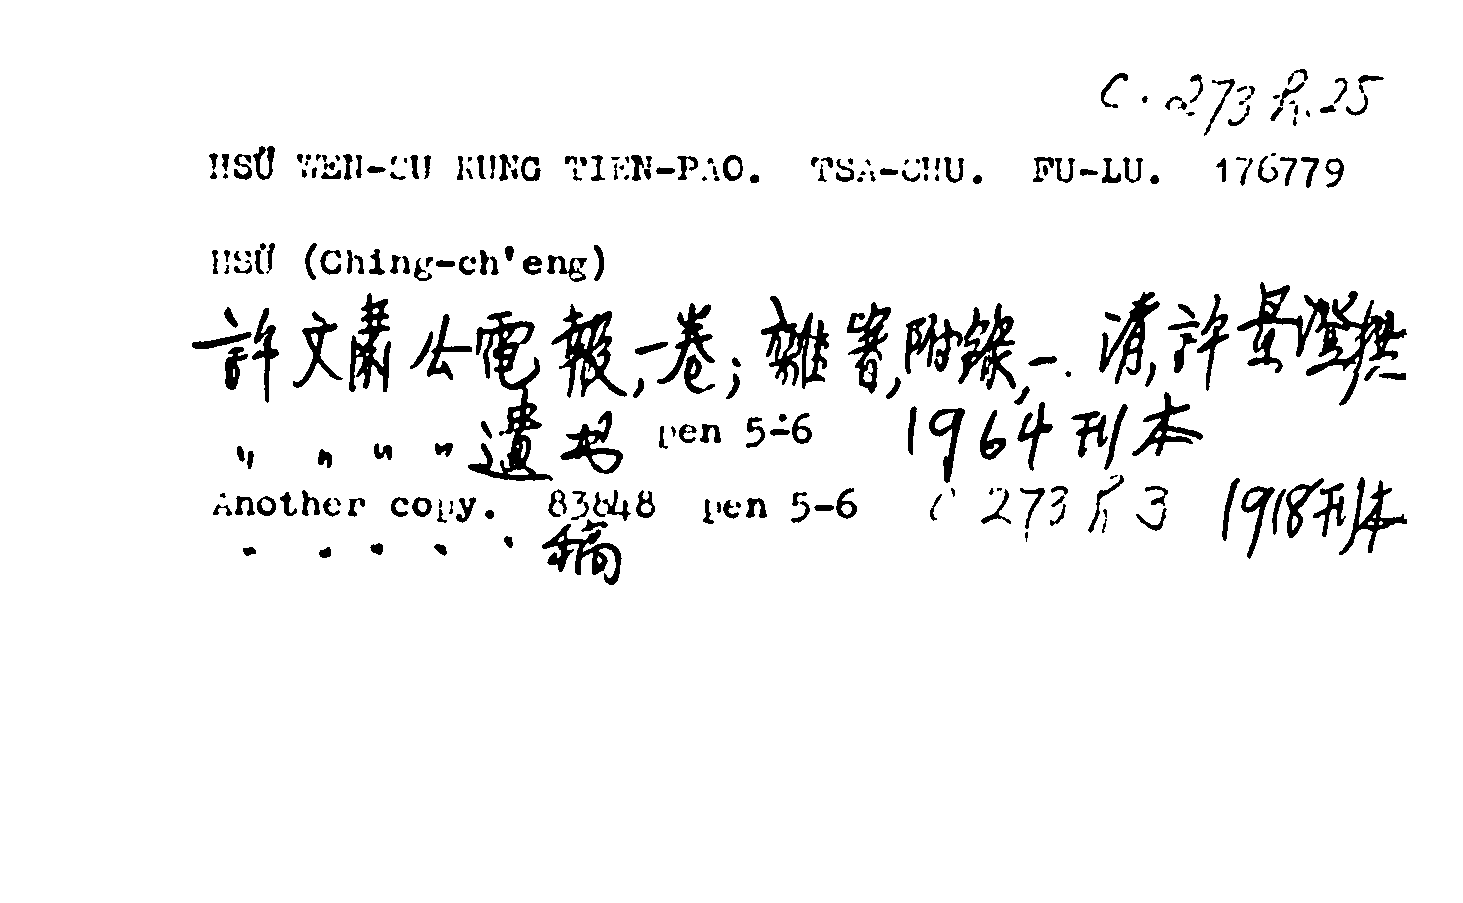 C. 273 h. 25
HSÜ WEN-SU KUNG TIEN-PAO. TSA-CHU. FU-LU. 176779
HSÜ (Ching-ch'eng)
許文肅公電報,一卷;雜著,附錄,一. 清,許景澄撰
" " " " 遺 pen 5-6 1964刊本
Another copy. 83848 pen 5-6 C 273 h 3 1918刊本
" " " " " 稿